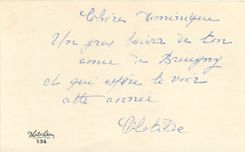 Chère Dominique
Un gros baiser de ton
amie de
et qui espère te voir
cette année
Clotilde
134